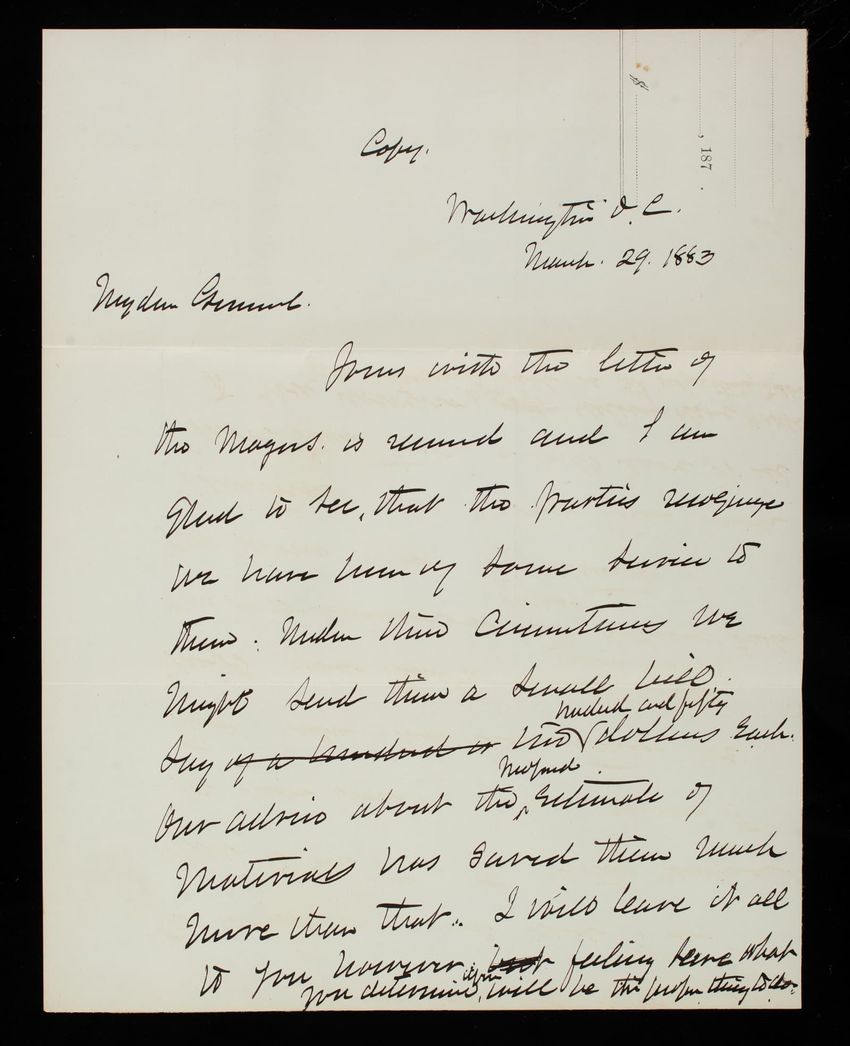 , 187 .
Copy.
Washington D.C.
March. 29. 1883
My dear General.
Yours with the letter of
the Mayors. is received and I am
Glad to see, that the parties recognize
we have been of some service to
them. Under these Circumstances we
Might send them a small bill.
hundred and fifty
Say of a hundred or two dollars Each.
Our advice about the Estimate of
Materials has saved them much
More than that. I will leave it all
to you however, feeling sure what
you determine, upon will be the proper thing to do.